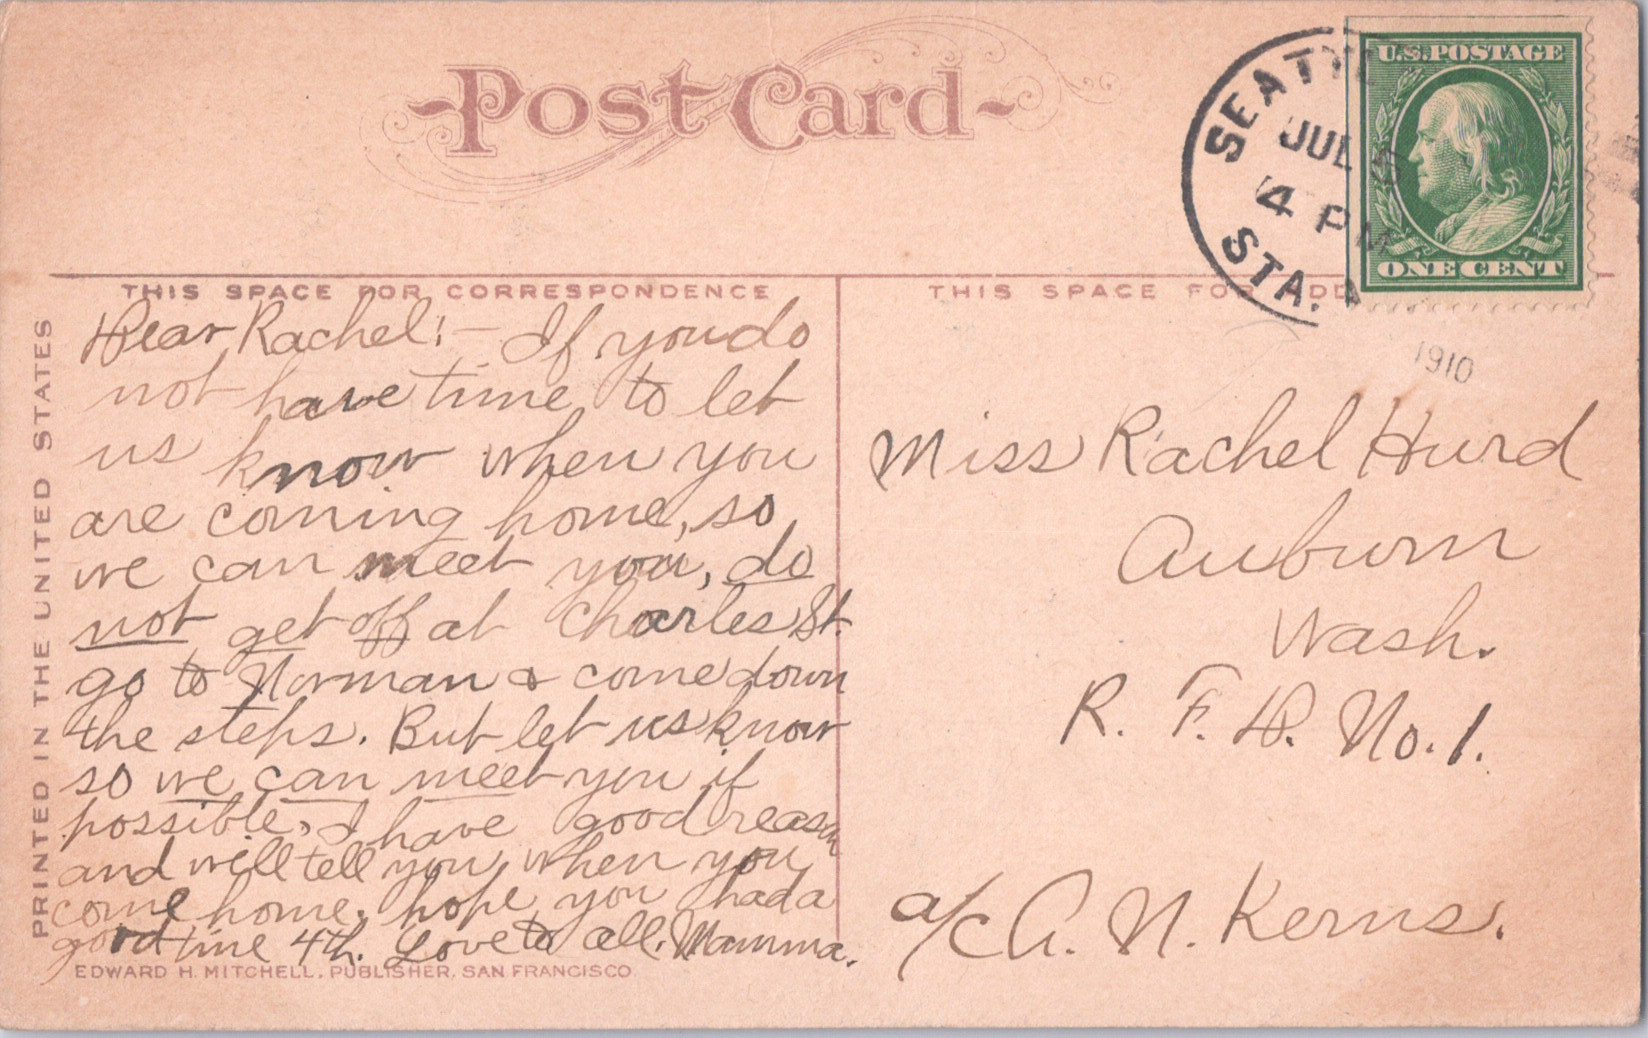 Post Card
U.S. POSTAGE
ONE CENT
SEATTLE
JUL 5
4 PM
STA. A
1910
THIS SPACE FOR CORRESPONDENCE
THIS SPACE FOR ADD
PRINTED IN THE UNITED STATES
Dear Rachel:- If you do
not have time to let
us know when you
are coming home, so
we can meet you, do
not get off at Charles St.
go to Norman & come down
the steps. But let us know
so we can meet you if
possible, I have good reason
and will tell you when you
come home. hope you had a
good time 4th. Love to all. Mamma.
EDWARD H. MITCHELL, PUBLISHER, SAN FRANCISCO.
Miss Rachel Hurd
Auburn
Wash.
R. F. D. No. 1.
a/c A. N. Kerns.